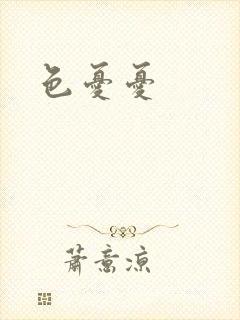 色憂憂
蕭意涼